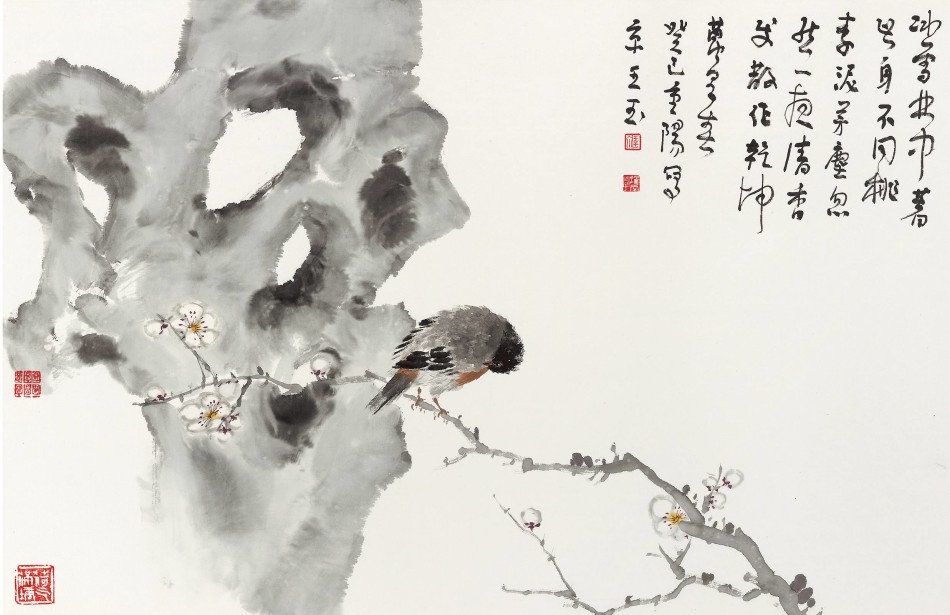 冰雪林中著
此身不同桃
李混芳塵忽
然一夜清香
發散作乾坤
萬里春
癸巳重陽寫
京